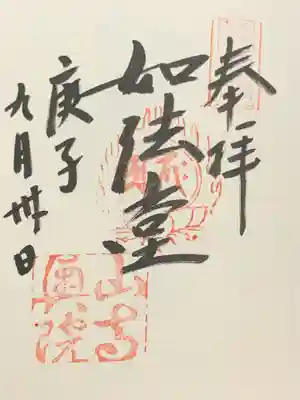 奉拝
如法堂
庚子
九月卅日
山寺
奥院